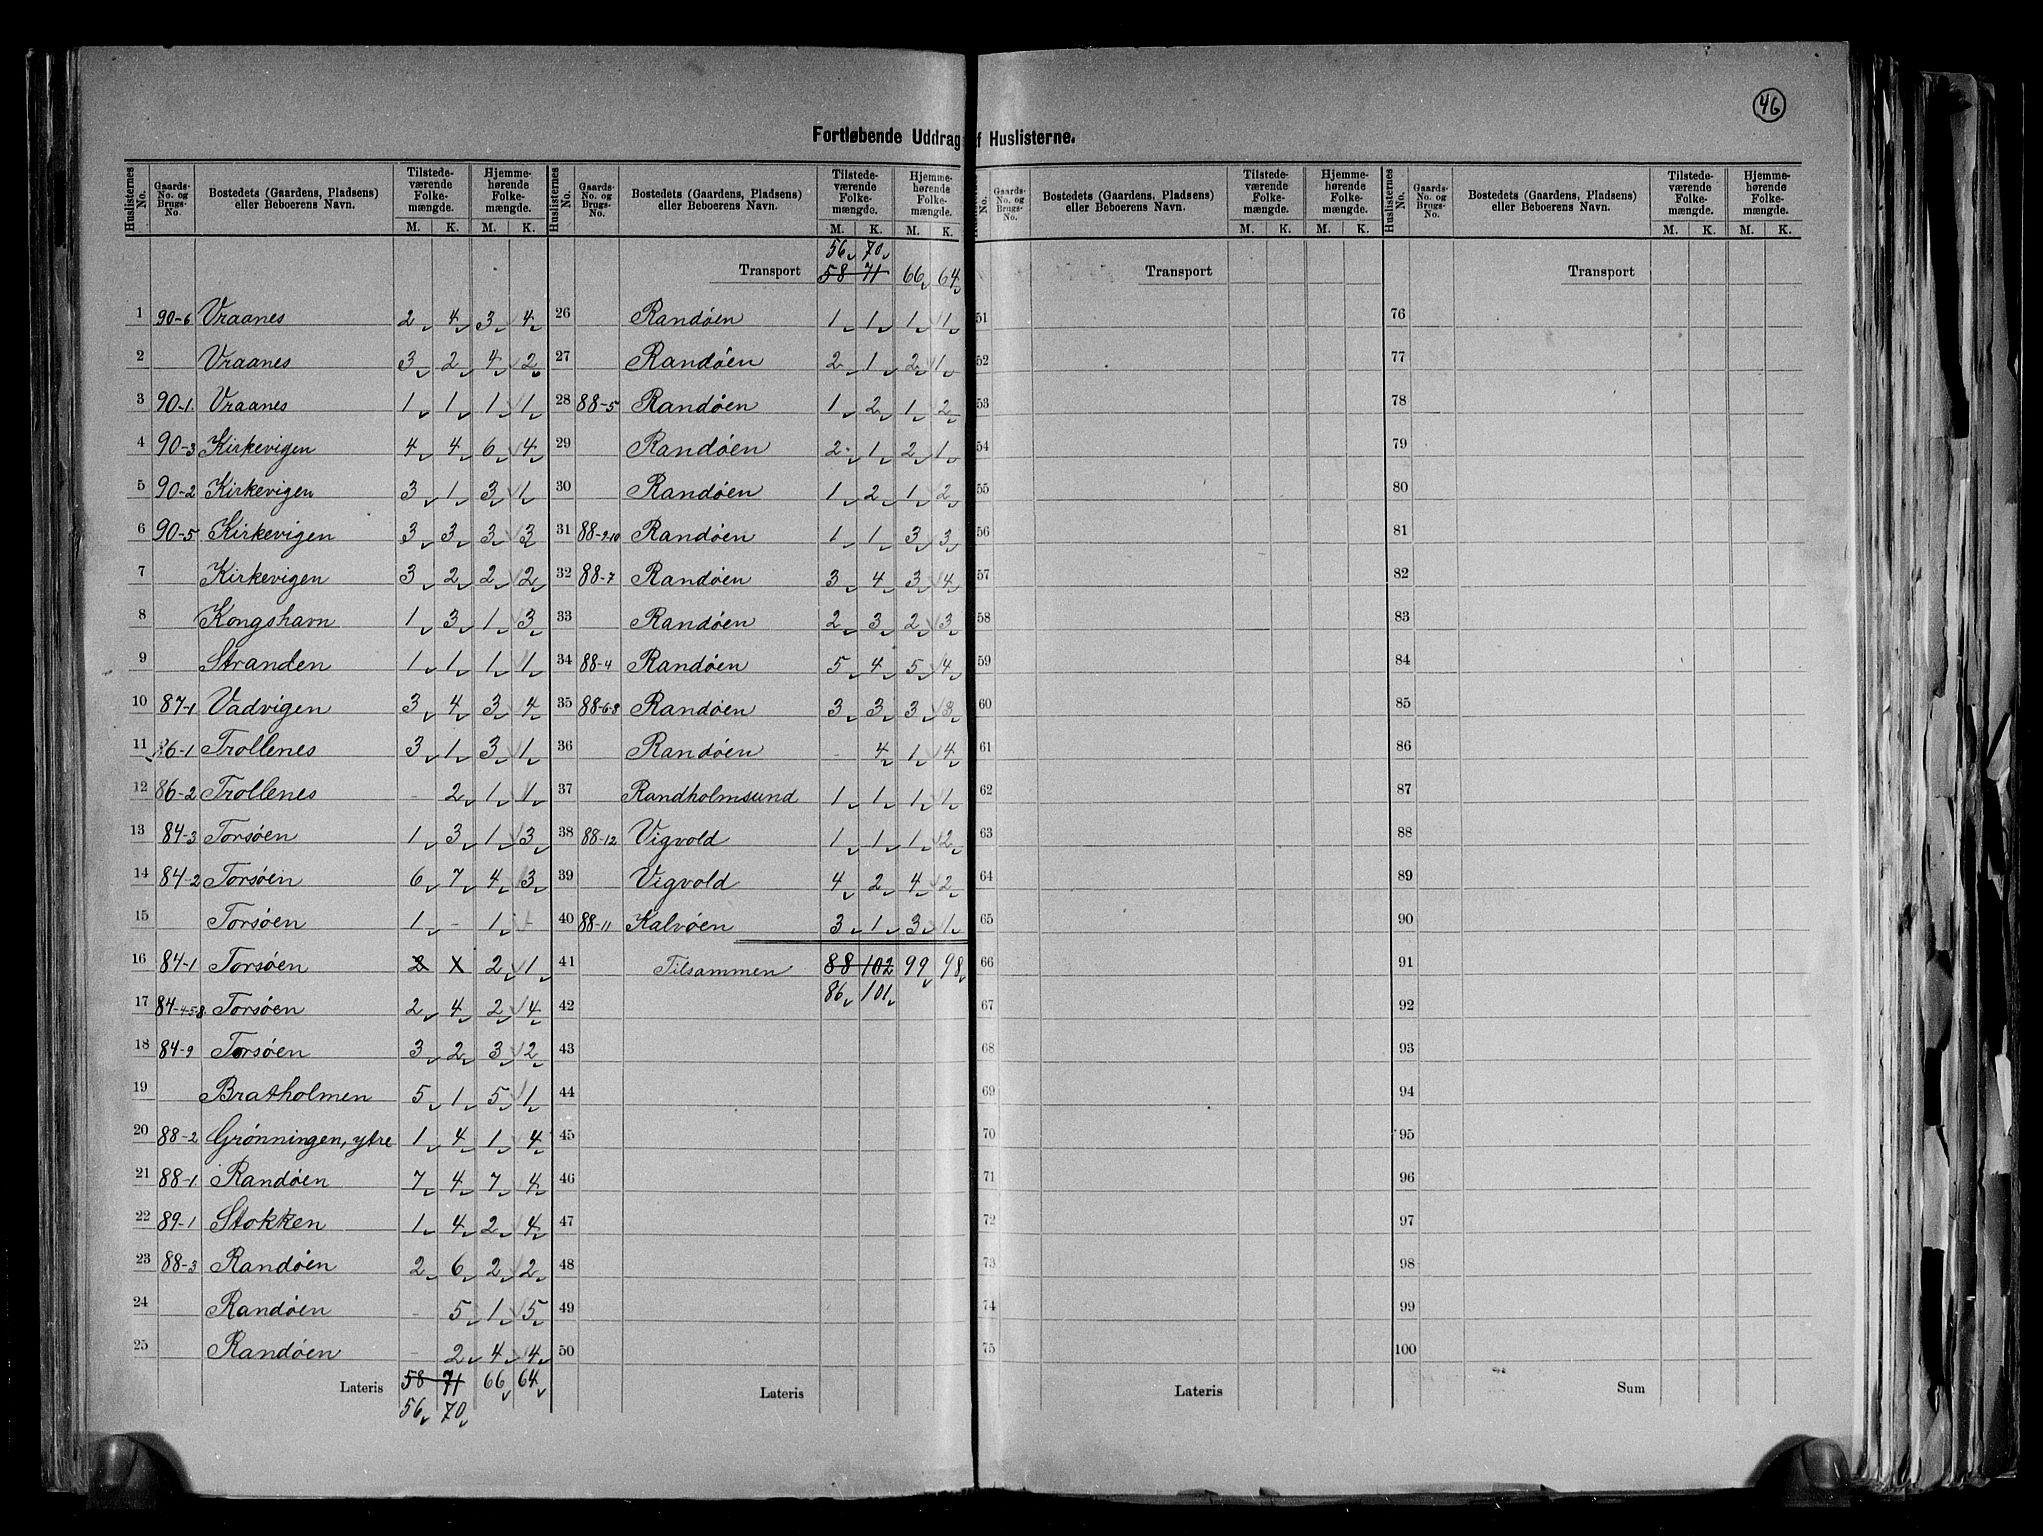 46
Fortløbende Uddrag af Huslisterne.
Huslisternes No. | Gaards-No. og Brugs-No. | Bostedets (Gaardens, Pladsens) eller Beboerens Navn. | Tilstedeværende Folkemængde. M. K. | Hjemmehørende Folkemængde. M. K.
1 90-6 Vraanes 2 4 3 4
2 Vraanes 3 2 4 2
3 90-1 Vraanes 1 1 1 1
4 90-3 Kirkevigen 4 4 6 4
5 90-2 Kirkevigen 3 1 3 1
6 90-5 Kirkevigen 3 3 3 3
7 Kirkevigen 3 2 2 2
8 Kongshavn 1 3 1 3
9 Stranden 1 1 1 1
10 87-1 Vadvigen 3 4 3 4
11 86-1 Trollenes 3 1 3 1
12 86-2 Trollenes - 2 1 1
13 84-3 Torsøen 1 3 1 3
14 84-2 Torsøen 6 7 4 3
15 Torsøen 1 - 1 -
16 84-1 Torsøen 2 2 1
17 84-4-5-8 Torsøen 2 4 2 4
18 84-9 Torsøen 3 2 3 2
19 Bratholmen 5 1 5 1
20 88-2 Grønningen, ytre 1 4 1 4
21 88-1 Randøen 7 4 7 4
22 89-1 Stokken 1 4 2 4
23 88-3 Randøen 2 6 2 2
24 Randøen - 5 1 5
25 Randøen - 2 4 4
Lateris 58 71 66 64
56 70
Huslisternes No. | Gaards-No. og Brugs-No. | Bostedets (Gaardens, Pladsens) eller Beboerens Navn. | Tilstedeværende Folkemængde. M. K. | Hjemmehørende Folkemængde. M. K.
56 70
Transport 58 71 66 64
26 Randøen 1 1 1 1
27 Randøen 2 1 2 1
28 88-5 Randøen 1 2 1 2
29 Randøen 2 1 2 1
30 Randøen 1 2 1 2
31 88-9-10 Randøen 1 1 3 3
32 88-7 Randøen 3 4 3 4
33 Randøen 2 3 2 3
34 88-4 Randøen 5 4 5 4
35 88-6-8 Randøen 3 3 3 3
36 Randøen - 4 1 4
37 Randholmsund 1 1 1 1
38 88-12 Vigvold 1 1 1 2
39 Vigvold 4 2 4 2
40 88-11 Kalvøen 3 1 3 1
41 Tilsammen 88 102 99 98
42 86 101
43
44
45
46
47
48
49
50
Lateris
Huslisternes No. | Gaards-No. og Brugs-No. | Bostedets (Gaardens, Pladsens) eller Beboerens Navn. | Tilstedeværende Folkemængde. M. K. | Hjemmehørende Folkemængde. M. K.
Transport
51
52
53
54
55
56
57
58
59
60
61
62
63
64
65
66
67
68
69
70
71
72
73
74
75
Lateris
Huslisternes No. | Gaards-No. og Brugs-No. | Bostedets (Gaardens, Pladsens) eller Beboerens Navn. | Tilstedeværende Folkemængde. M. K. | Hjemmehørende Folkemængde. M. K.
Transport
76
77
78
79
80
81
82
83
84
85
86
87
88
89
90
91
92
93
94
95
96
97
98
99
100
Sum